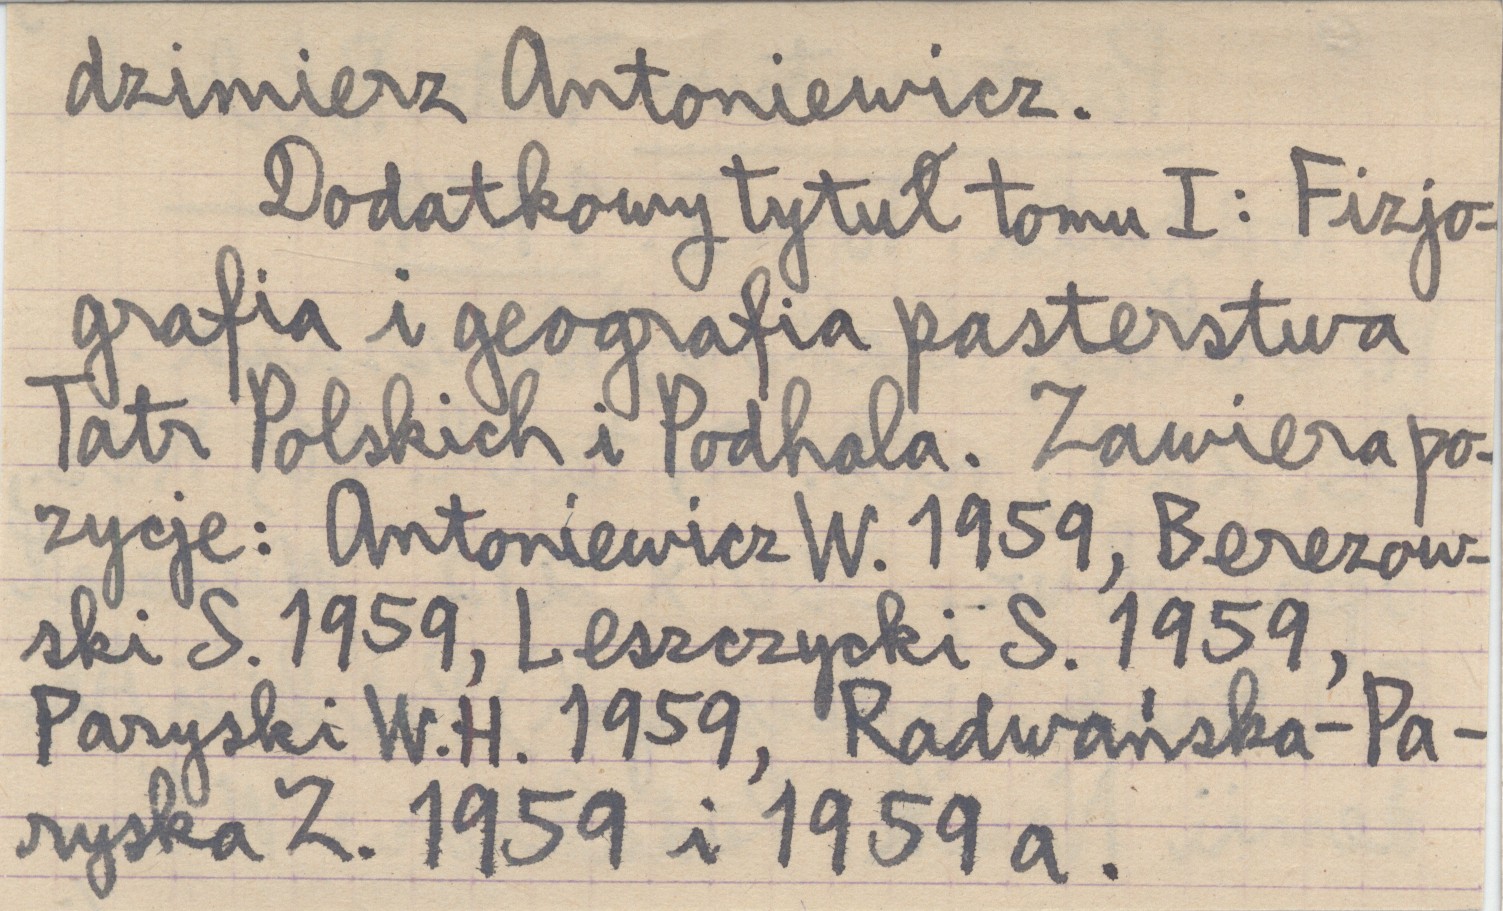 dzimierz Antoniewicz.
Dodatkowy tytuł tomu I: Fizjo-
grafia i geografia pasterstwa
Tatr Polskich i Podhala. Zawiera po-
zycje: Antoniewicz W. 1959, Berezow-
ski S. 1959, Leszczycki S. 1959,
Paryski W.H. 1959, Radwańska-Pa-
ryska Z. 1959 i 1959 a.